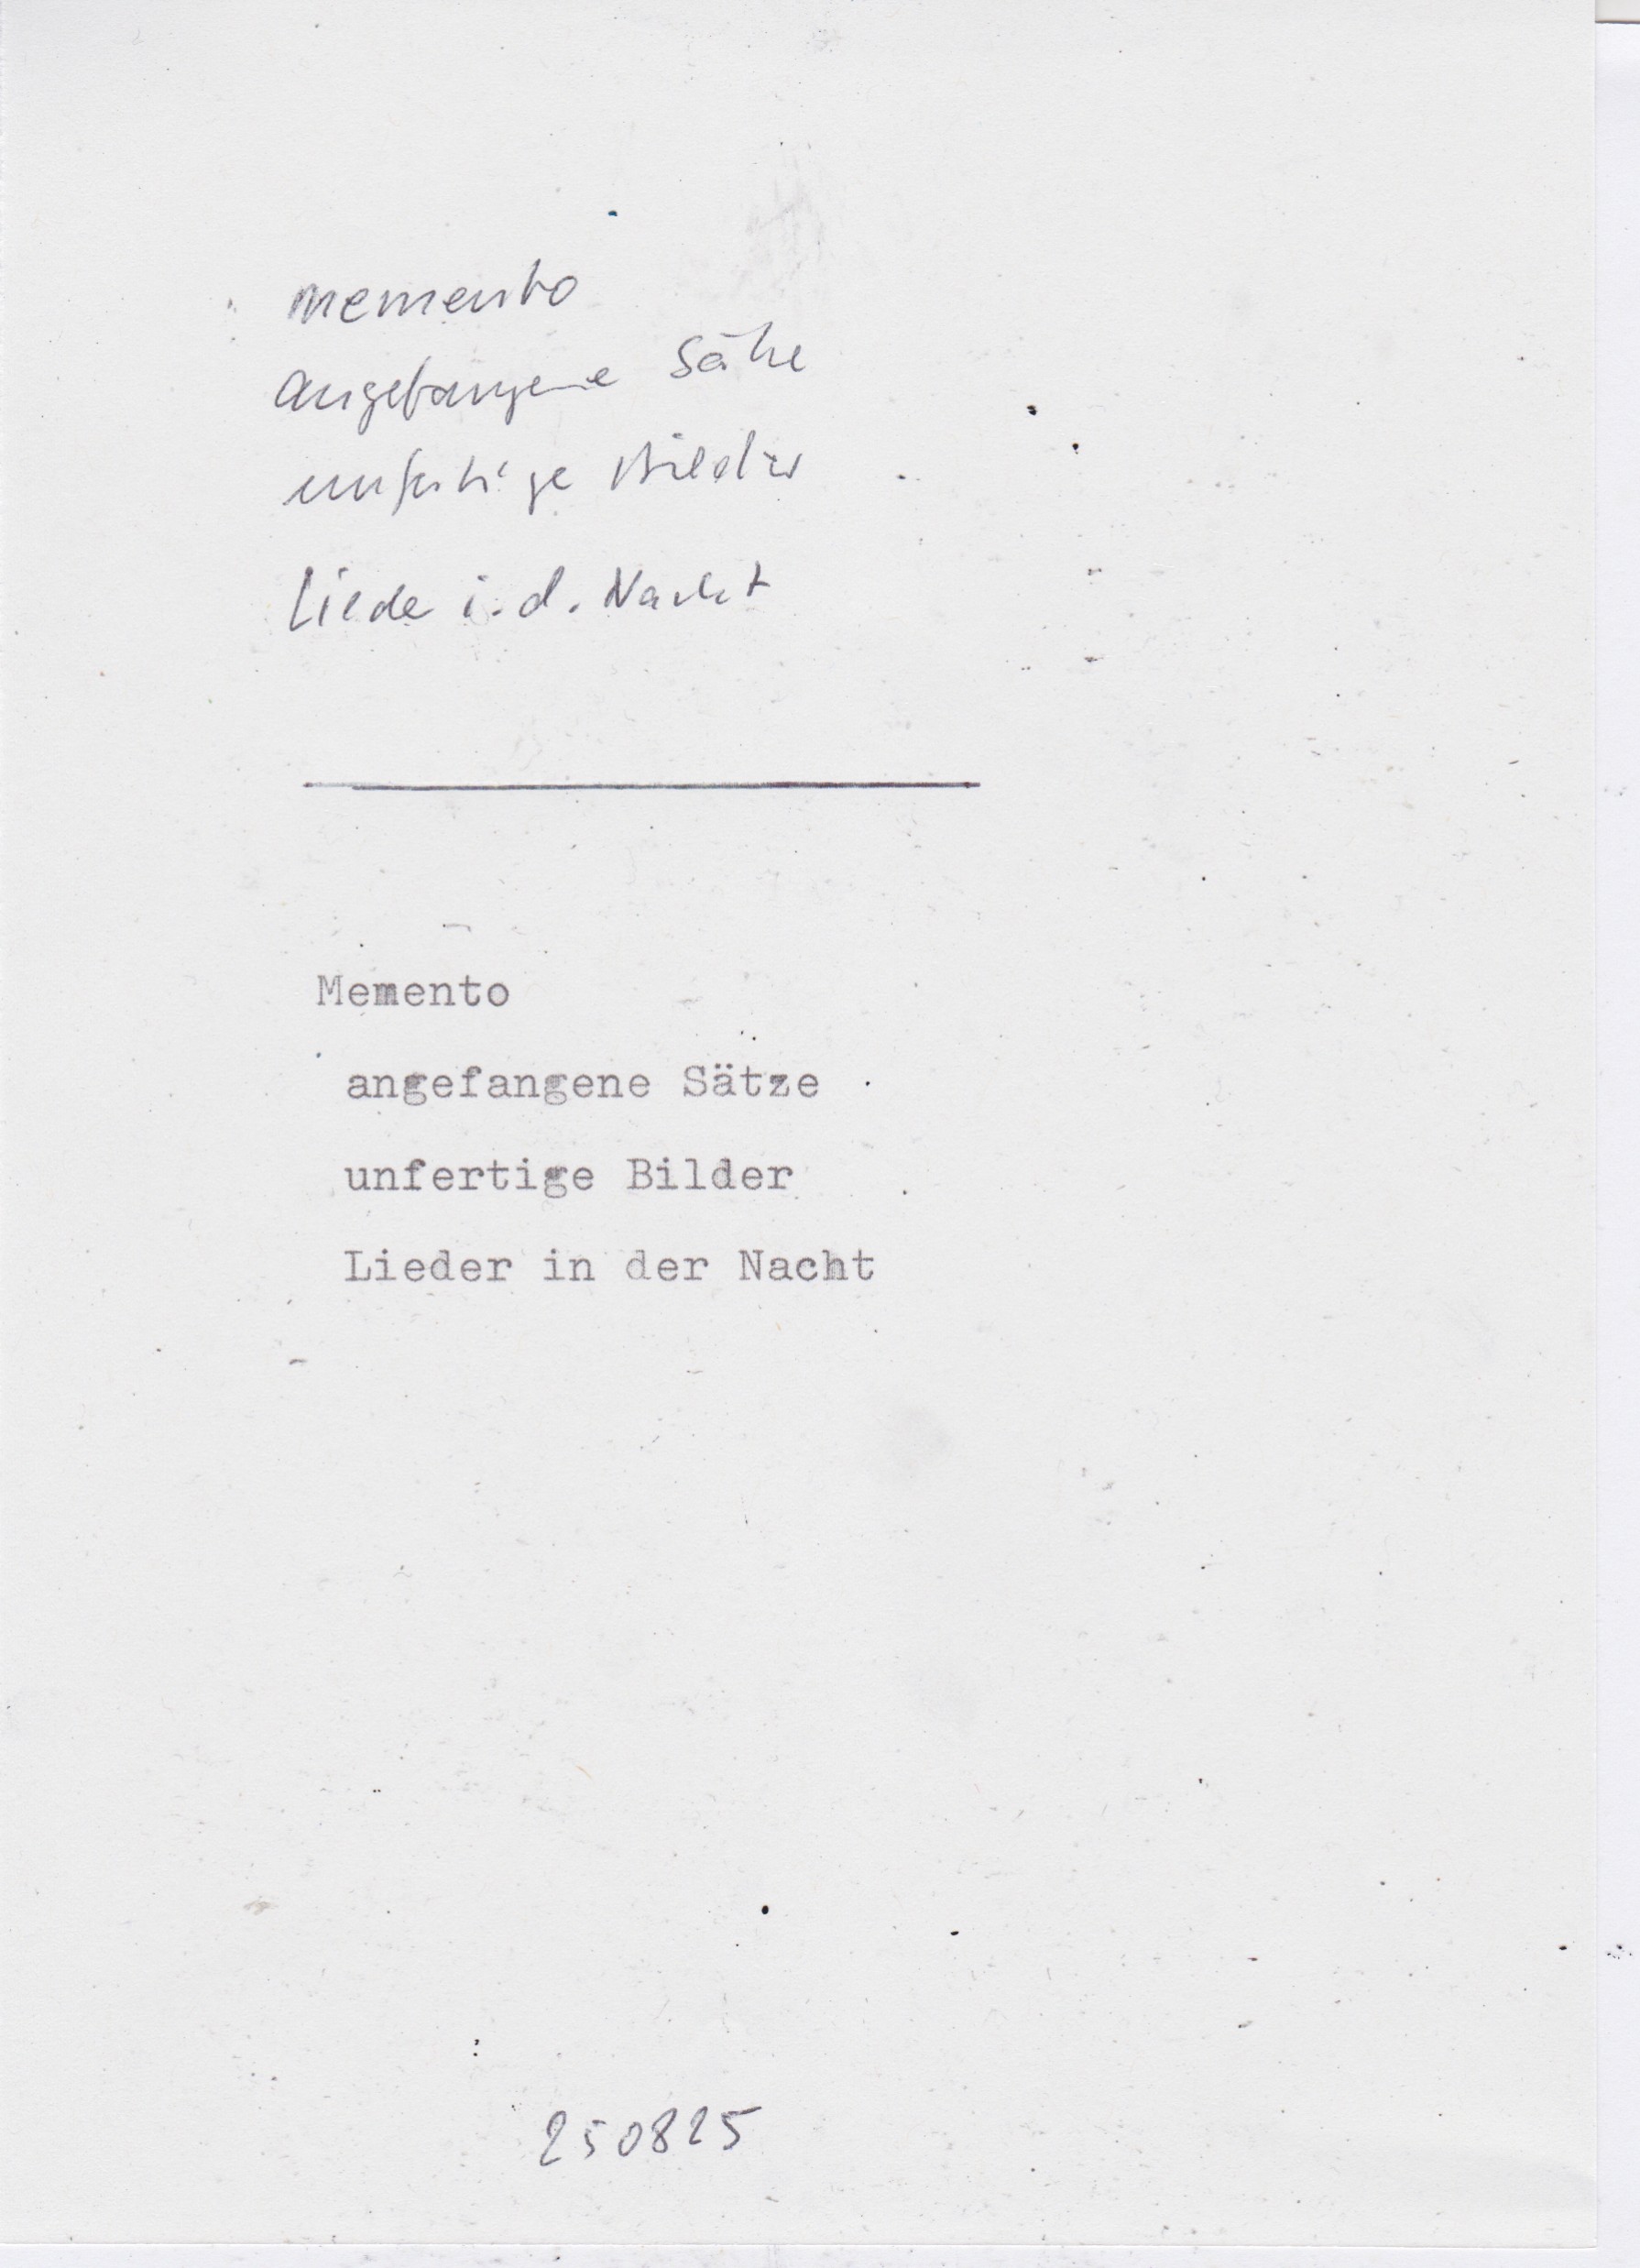 memento
angefangene Sätze
unfertige Bilder
Lieder i. d. Nacht
Memento
angefangene Sätze
unfertige Bilder
Lieder in der Nacht
250825